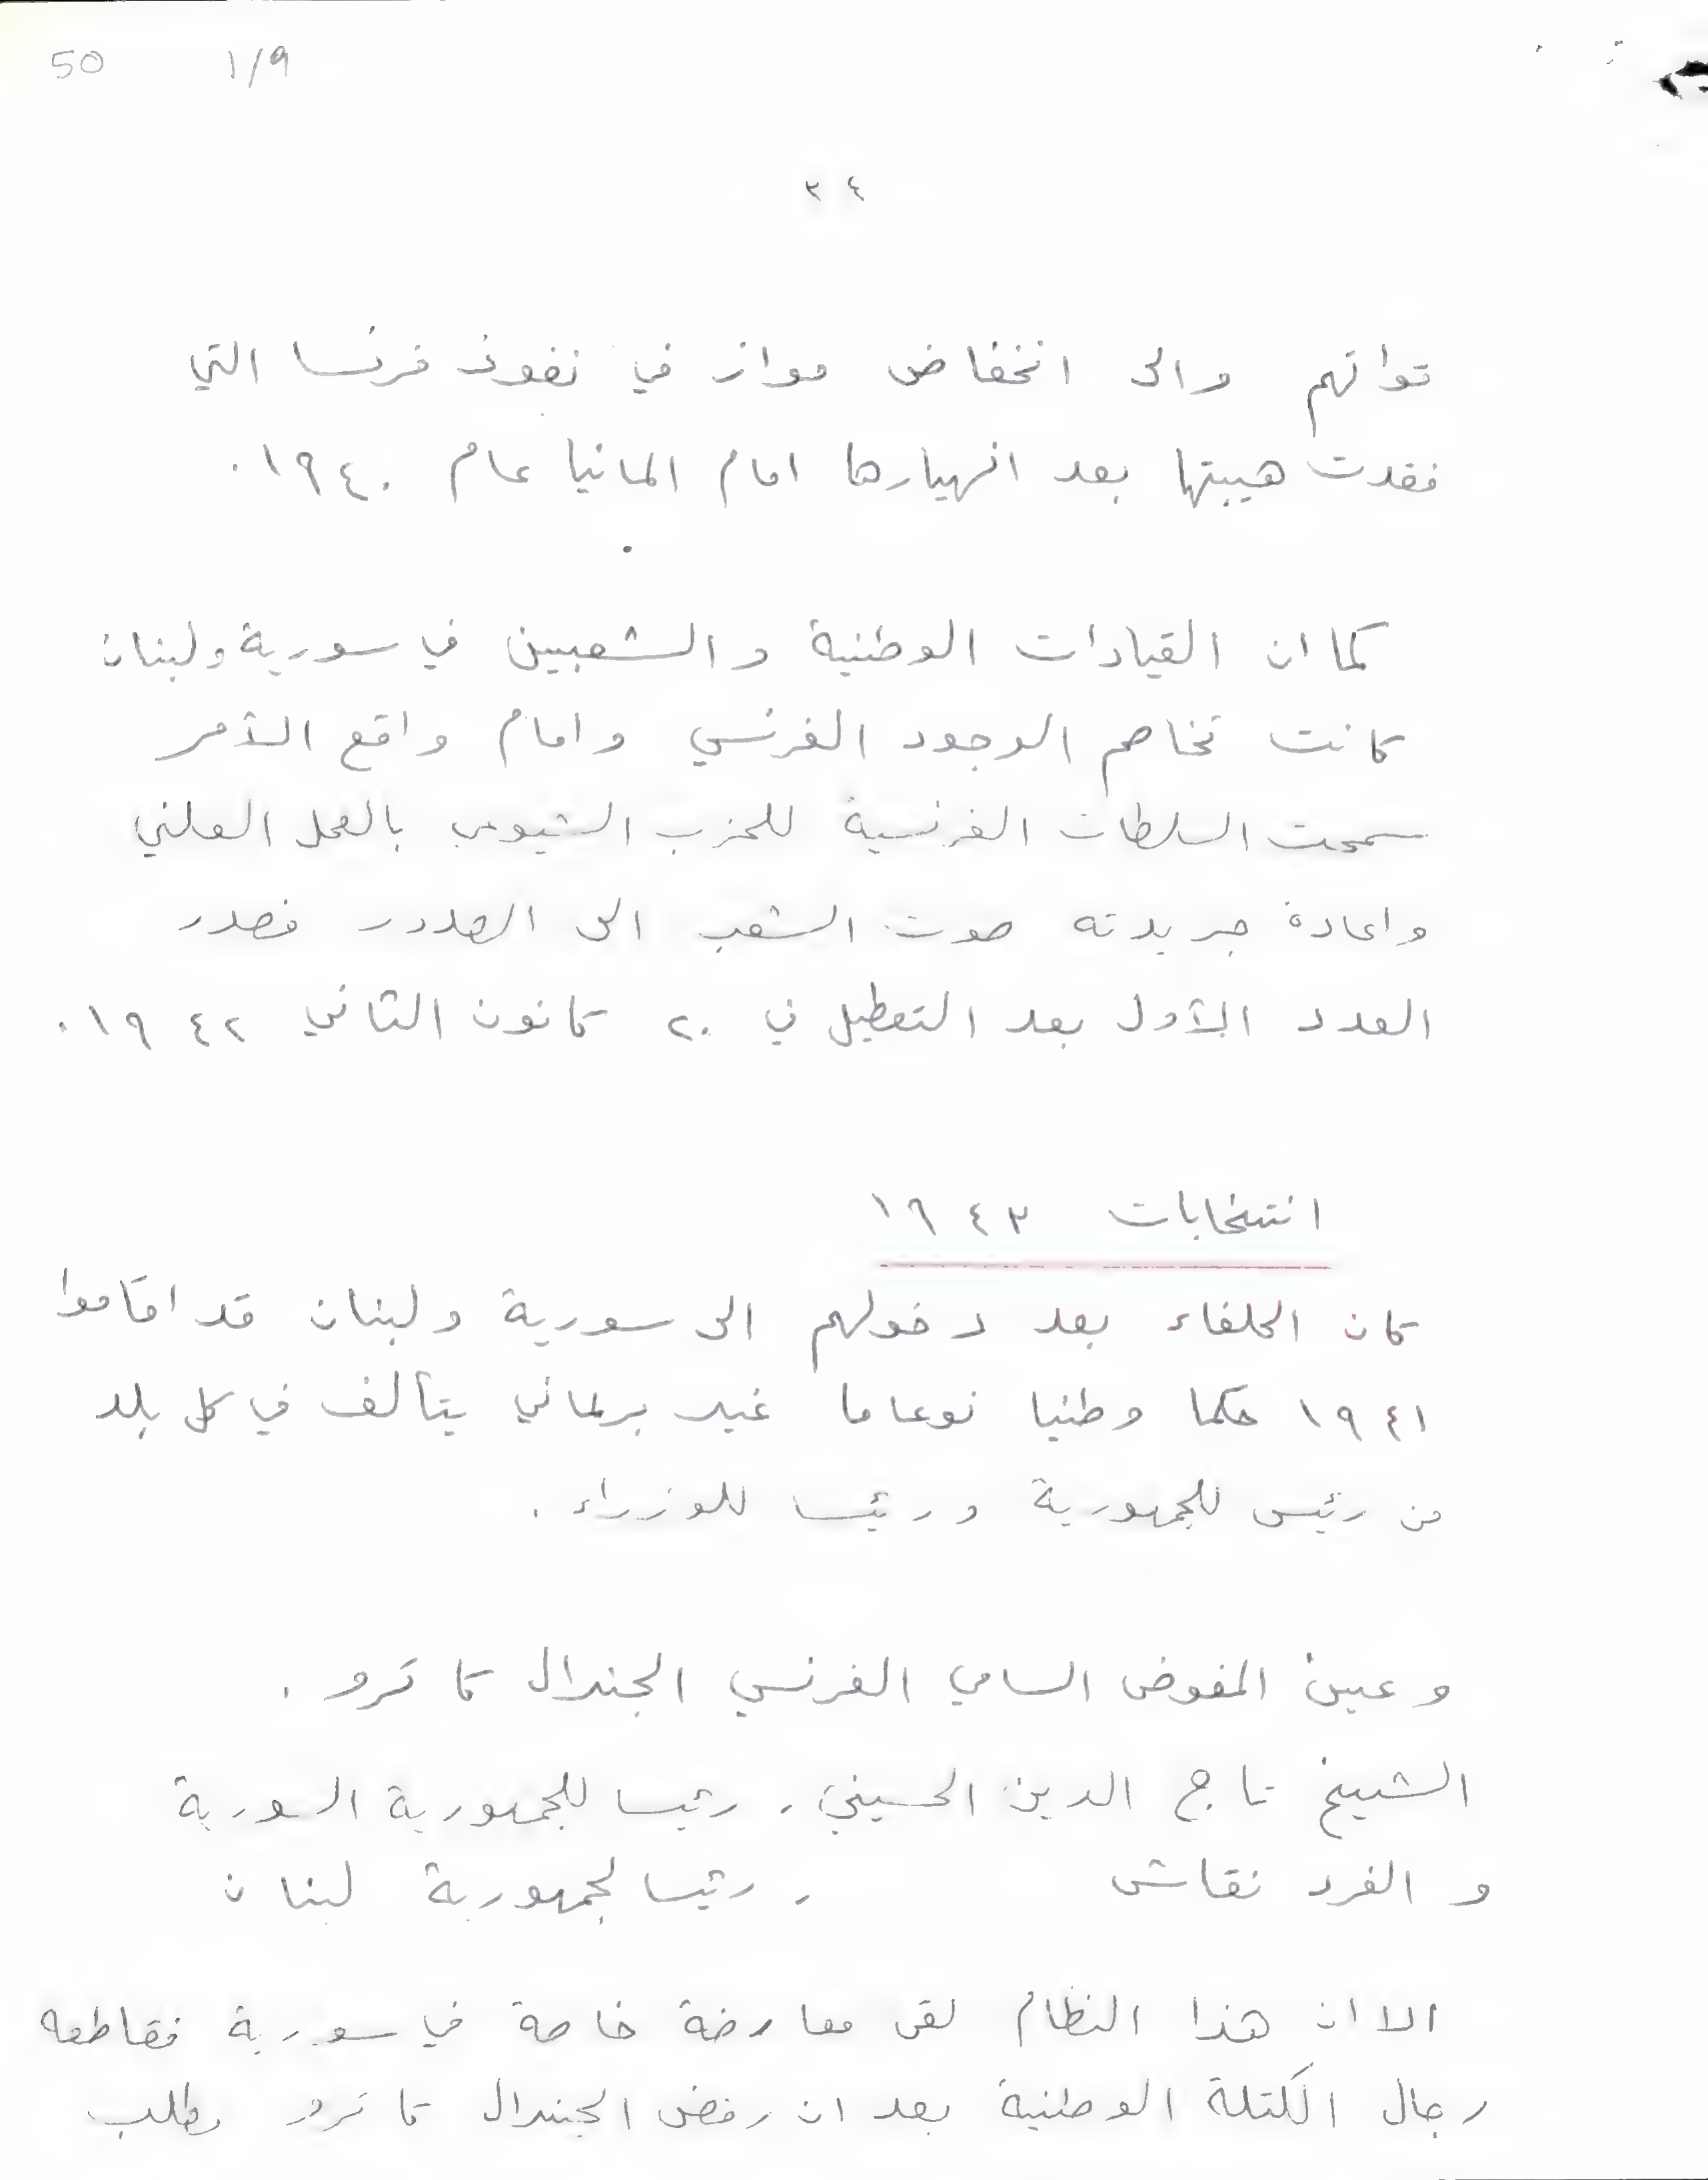 50 ١/٩
٣٤
قواتهم والى انخفاض مواز في نفوذ فرنسا التي
فقدت هيبتها بعد انهيارها امام المانيا عام ١٩٤٠.
كما ان القيادات الوطنية والشعبين في سورية ولبنان
كانت تخاصم الوجود الفرنسي وامام واقع الأمر
سمحت السلطات الفرنسية للحزب الشيوعي بالعمل العلني
واعادة جريدته صوت الشعب الى الصدور فصدر
العدد الأول بعد التعطيل في ٢٠ كانون الثاني ١٩٤٢.
انتخابات ١٩٤٣
كان الحلفاء بعد دخولهم الى سورية ولبنان قد اقاموا
١٩٤١ حكما وطنيا نوعا ما غير برلماني يتألف في كل بلد
من رئيس للجمهورية ورئيسا للوزراء.
وعين المفوض السامي الفرنسي الجنرال كاترو.
الشيخ تاج الدين الحسيني، رئيسا للجمهورية السورية
و الفرد نقاش ، رئيسا لجمهورية لبنان
الا ان هذا النظام لقي معارضة خاصة في سورية فقاطعه
رجال الكتلة الوطنية بعد ان رفض الجنرال كاترو مطلب